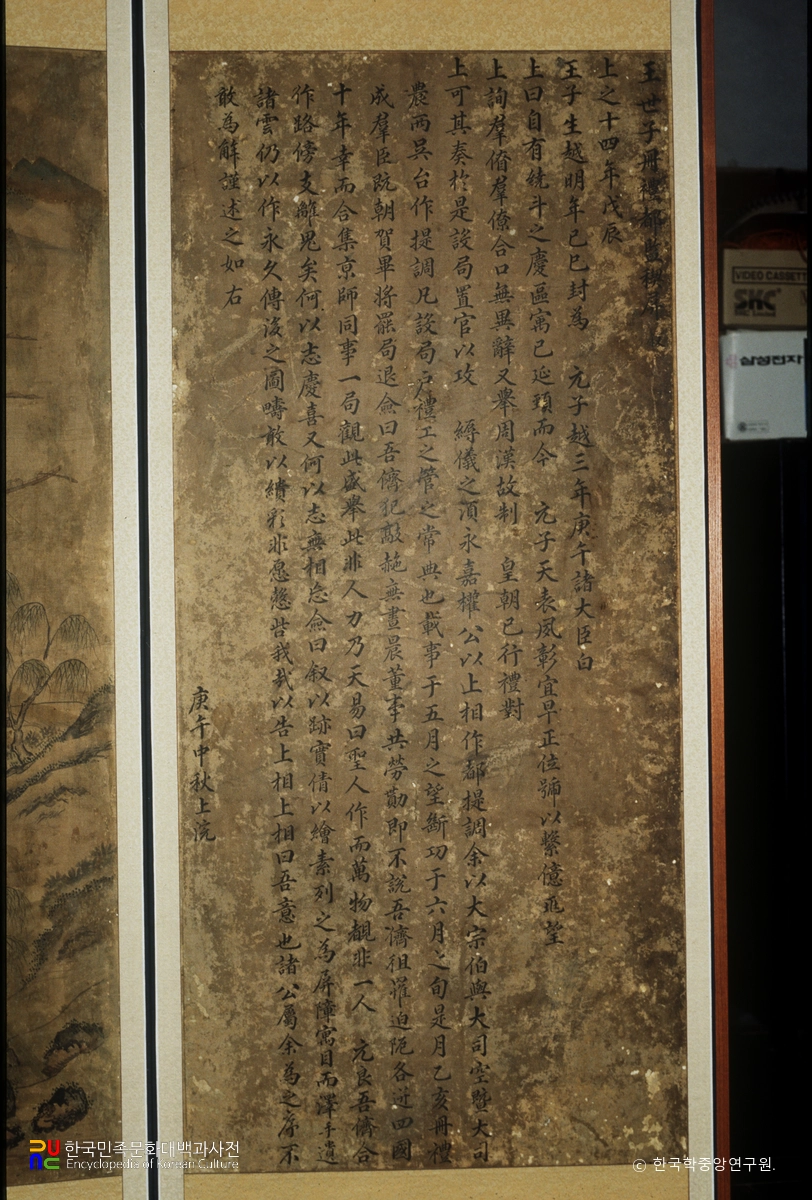 王世子冊禮都監稧屛序
上之十四年戊辰
王子生越明年己巳封為 元子越三年庚午諸大臣白
上曰自有繞斗之慶區寓已延頸而今 元子天表夙彰宜早正位號以繫億兆望
上詢羣僚羣僚合口無異辭又擧周漢故制 皇朝已行禮對
上可其奏於是設局置官以攻 縟儀之湏永嘉權公以上相作都提調余以大宗伯與大司空曁大司
農兩吳台作提調凡設局戶禮工之管之常典也載事于五月之望斷功于六月之旬是月乙亥冊禮
成羣臣旣朝賀畢將罷局退僉曰吾儕犯敲赩無晝晨董事共勞勩即不說吾儕徂摧迫阨各迸四國
十年幸而合集京師同事一局觀此盛擧此非人力乃天易曰聖人作而萬物覩非一人 元良吾儕合
作路傍支離鬼矣何以志慶喜又何以志無相忘僉曰叙以跡實倩以繪素列之為屛障寓目而澤手遺
諸雲仍以作永久傳後之圖疇敢以繢彩非愿慇訾我哉以告上相上相曰吾意也諸公屬余為之序不
敢為辭謹述之如右
庚午中秋上浣
VIDEO CASSETTE
SKC
삼성전자
한국민족문화대백과사전
Encyclopedia of Korean Culture
© 한국학중앙연구원.